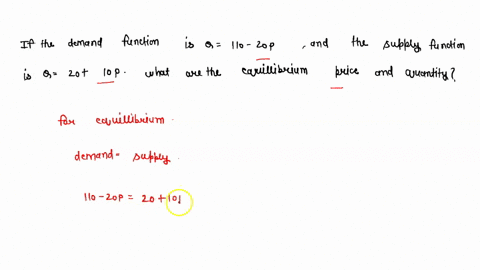 If the demand function is Q = 110 - 20p , and the supply function
is Q = 20 + 10p. what are the equillibrium price and quantity?
for equillibrium.
demand = supply.
110 - 20p = 20 + 10